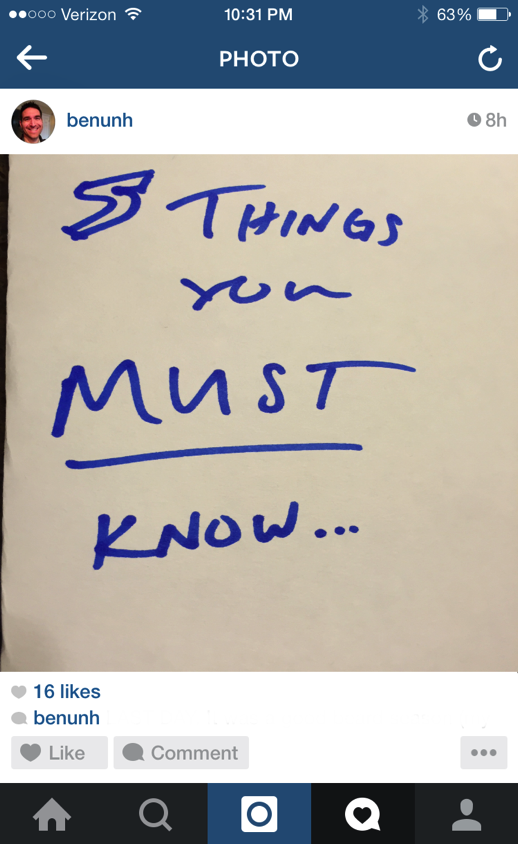 Verizon 10:31 PM 63%
PHOTO
benunh 8h
5 THINGS
You
MUST
KNOW...
16 likes
benunh
Like Comment